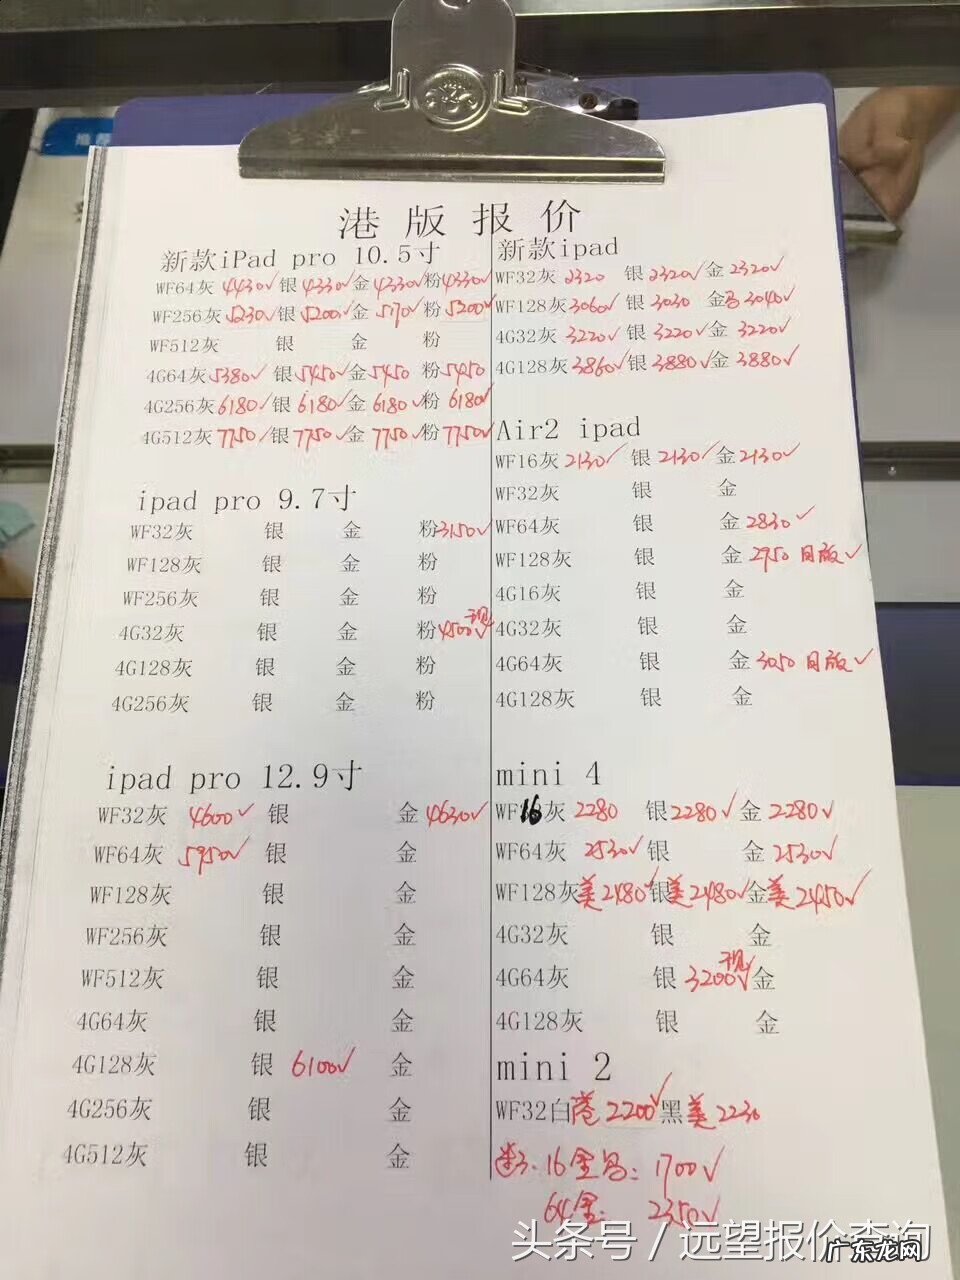 港版报价
新款iPad pro 10.5寸
WF64灰 4430√ 银 4330√ 金 4330√ 粉 4330√
WF256灰 5230√ 银 5200√ 金 5170√ 粉 5200√
WF512灰 银 金 粉
4G64灰 5380√ 银 5450√ 金 5450 粉 5450
4G256灰 6180√ 银 6180√ 金 6180√ 粉 6180√
4G512灰 7750√ 银 7750√ 金 7750√ 粉 7750√
ipad pro 9.7寸
WF32灰 银 金 粉 3150√
WF128灰 银 金 粉
WF256灰 银 金 粉
4G32灰 银 金 粉 4500√ 现
4G128灰 银 金 粉
4G256灰 银 金 粉
ipad pro 12.9寸
WF32灰 4600√ 银 金 4630√
WF64灰 5950√ 银 金
WF128灰 银 金
WF256灰 银 金
WF512灰 银 金
4G64灰 银 金
4G128灰 银 6100√ 金
4G256灰 银 金
4G512灰 银 金
新款ipad
WF32灰 2320 银 2320√ 金 2320√
WF128灰 3060√ 银 3030 金 3040√
4G32灰 3220√ 银 3220√ 金 3220√
4G128灰 3860√ 银 3880√ 金 3880√
Air2 ipad
WF16灰 2130√ 银 2130√ 金 2130√
WF32灰 银 金
WF64灰 银 金 2830√
WF128灰 银 金 2950 日版√
4G16灰 银 金
4G32灰 银 金
4G64灰 银 金 3050 日版√
4G128灰 银 金
mini 4
WF16灰 2280 银 2280√ 金 2280√
WF64灰 2530√ 银 金 2530√
WF128灰 美2480√ 银 美2480√ 金 美2450√
4G32灰 银 金
4G64灰 银 3200√ 现 金
4G128灰 银 金
mini 2
WF32白 港 2200√ 黑 美 2230
16金 1700√
64金: 2350√
头条号 / 远望报价查询
广东龙网